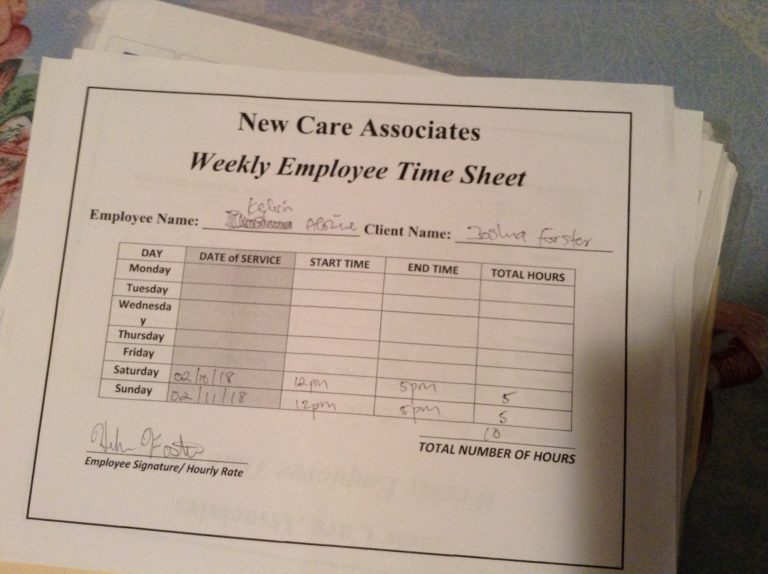 New Care Associates
Weekly Employee Time Sheet
Kelvin
Employee Name: Client Name: Joshua Forster
DAY DATE of SERVICE START TIME END TIME TOTAL HOURS
Monday
Tuesday
Wednesda
y
Thursday
Friday
Saturday 02/10/18 12pm 5pm 5
Sunday 02/11/18 12pm 5pm 5
10
TOTAL NUMBER OF HOURS
Employee Signature/ Hourly Rate